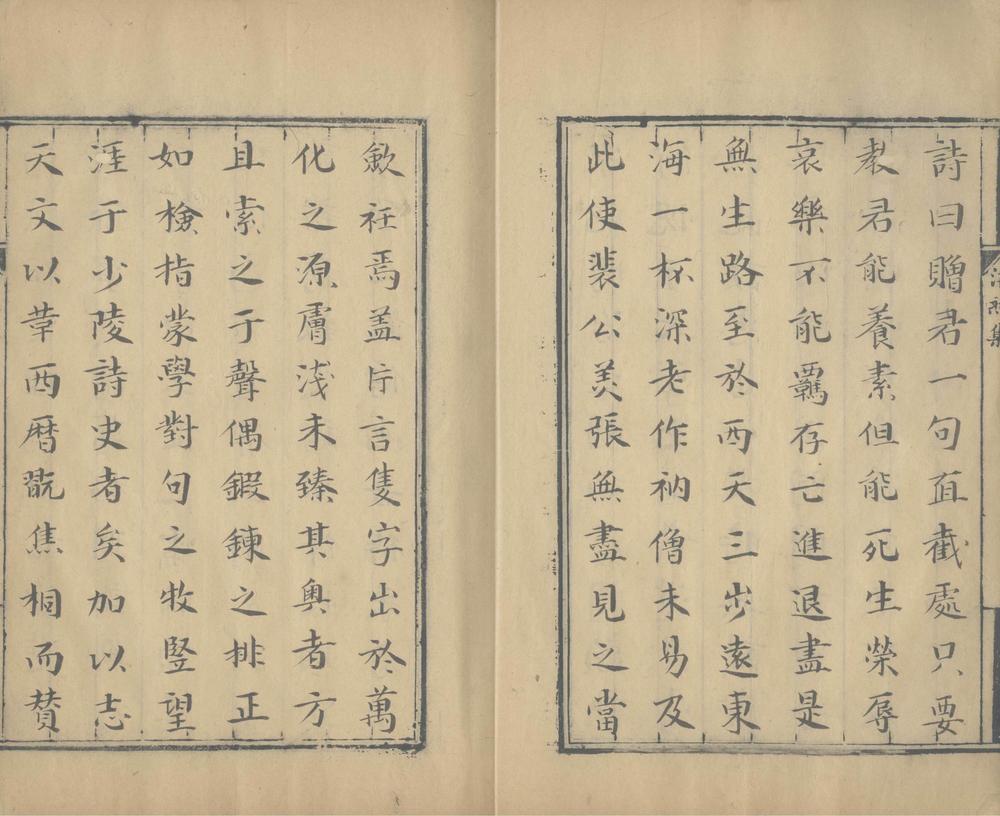 詩曰贈君一句直截處只要
教君能養素但能死生榮辱
哀樂不能羈存亡進退盡是
無生路至於西天三步遠東
海一杯深老作衲僧未易及
此使裴公美張無盡見之當
斂衽焉蓋片言隻字出於萬
化之源膚淺未臻其奧者方
且索之于聲偶鍛鍊之排正
如檢指蒙學對句之牧豎望
涯于少陵詩史者矣加以志
天文以革西曆翫焦桐而賛